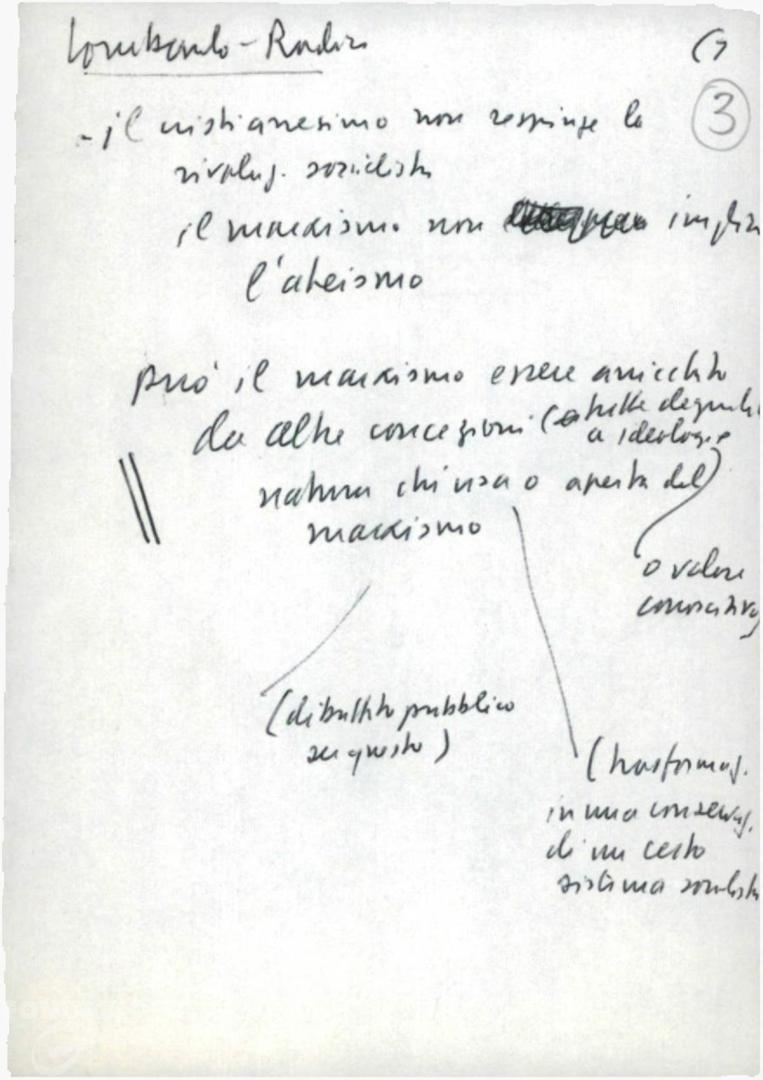 Lombardo-Radice
G
3
- il cristianesimo non respinge la
rivoluz. socialista
il marxismo non implica
l'ateismo
può il marxismo essere arricchito
da altre concezioni (o tutte degradate
a ideologie
natura chiusa o aperta del)
marxismo
o valore
conoscitivo
(dibattito pubblico
su questo)
(trasformaz.
in una conservaz.
di un certo
sistema socialista